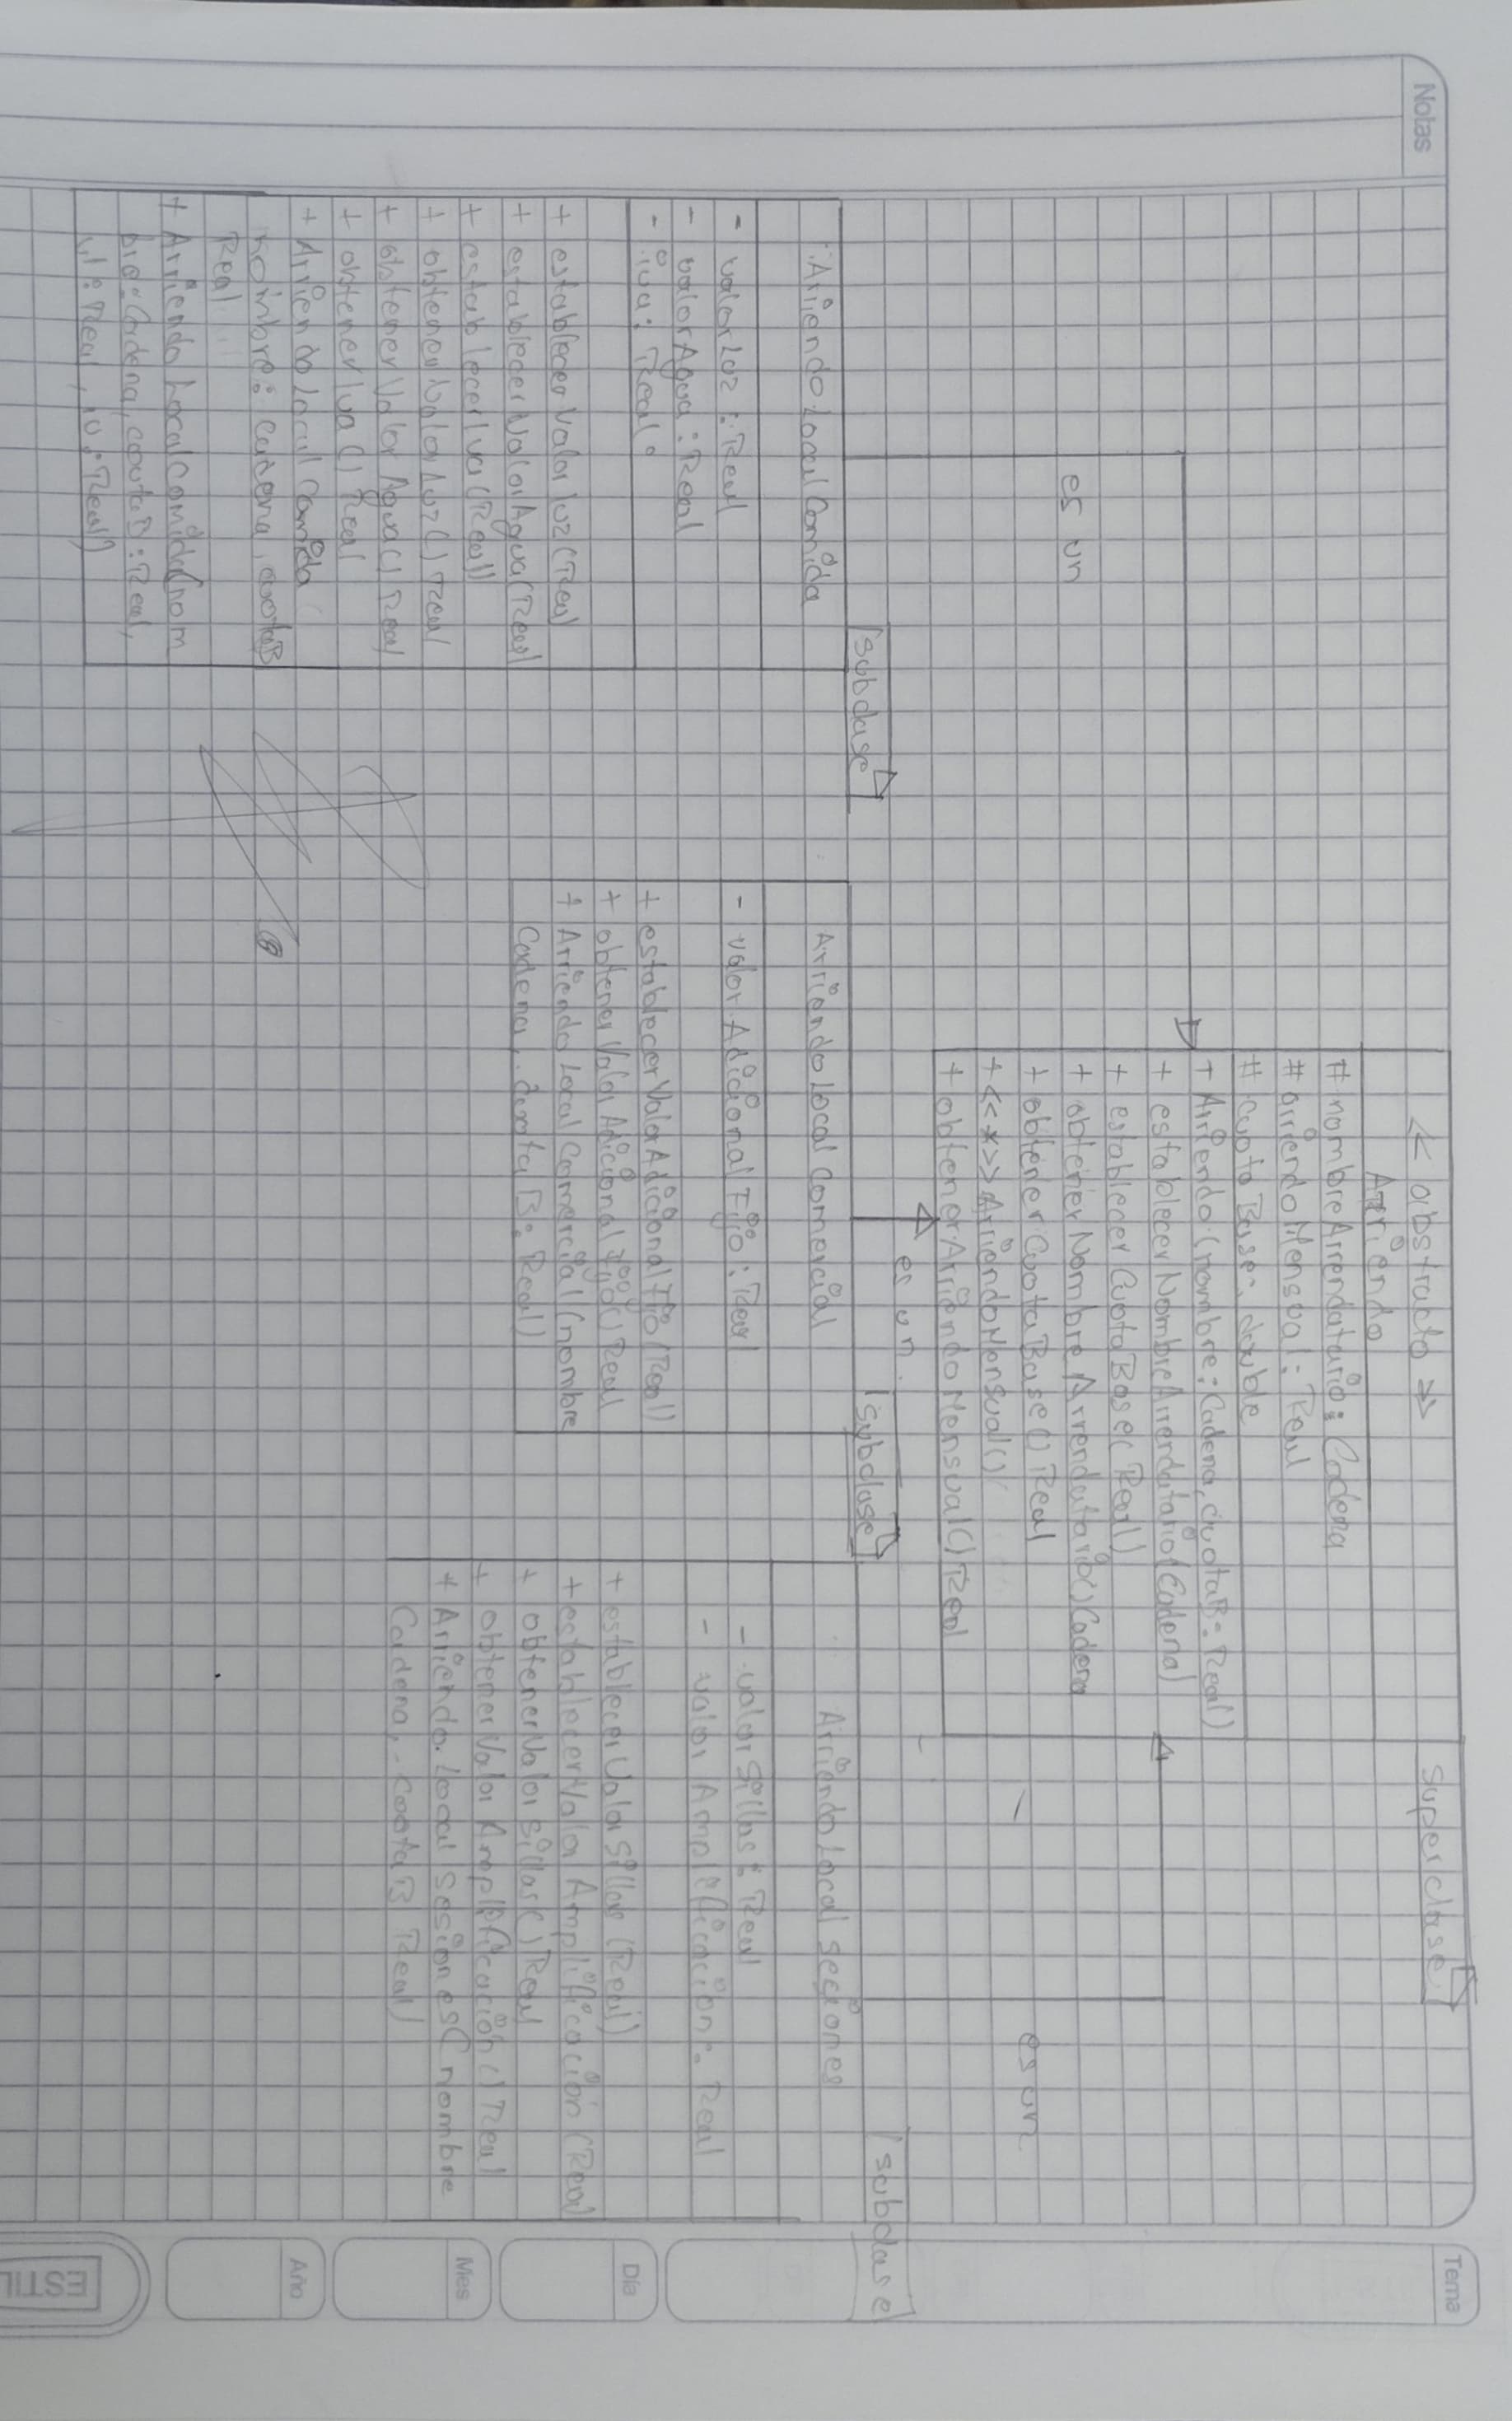 Notas
Tema
<< abstracto >>
Superclase
Arriendo
# nombreArrendatario: Cadena
# arriendoMensual: Real
# cuotaBase: double
+ Arriendo (nombre: Cadena, cuotaB: Real)
+ establecerNombreArrendatario(Cadena)
+ establecerCuotaBase(Real)
+ obtenerNombreArrendatario() Cadena
+ obtenerCuotaBase() Real
+ <<*>> ArriendoMensual()
+ obtenerArriendoMensual() Real
es un
es un
es un
subclase
ArriendoLocalComida
- valorLuz: Real
- valorAgua: Real
- iva: Real
+ establecerValorluz(Real
+ establecerValorAgua(Real)
+ establecerIva(Real)
+ obtenerValorLuz() Real
+ obtenerValorAgua() Real
+ obtenerIva() Real
+ ArriendoLocalComida(
nombre: Cadena, cuotaB
Real
+ ArriendoLocalComida(nom
bre: Cadena, cuotaB: Real,
Real, Real)
subclase
ArriendoLocalComercial
- valorAdicionalFijo: Real
+ establecerValorAdicionalFijo(Real)
+ obtenerValorAdicionalFijo() Real
+ ArriendoLocalComercial(nombre
Cadena, cuotaB: Real)
subclase
ArriendoLocal Seciones
- valorSillas: Real
- valorAmplificacion: Real
+ establecerValorSillas (Real)
+ establecerValorAmplificación (Real)
+ obtenerValorSillas() Real
+ obtenerValorAmplificación() Real
+ ArriendoLocal Sesiones(nombre
Cadena, cuotaB Real)
Día
Mes
Año
ESTIL